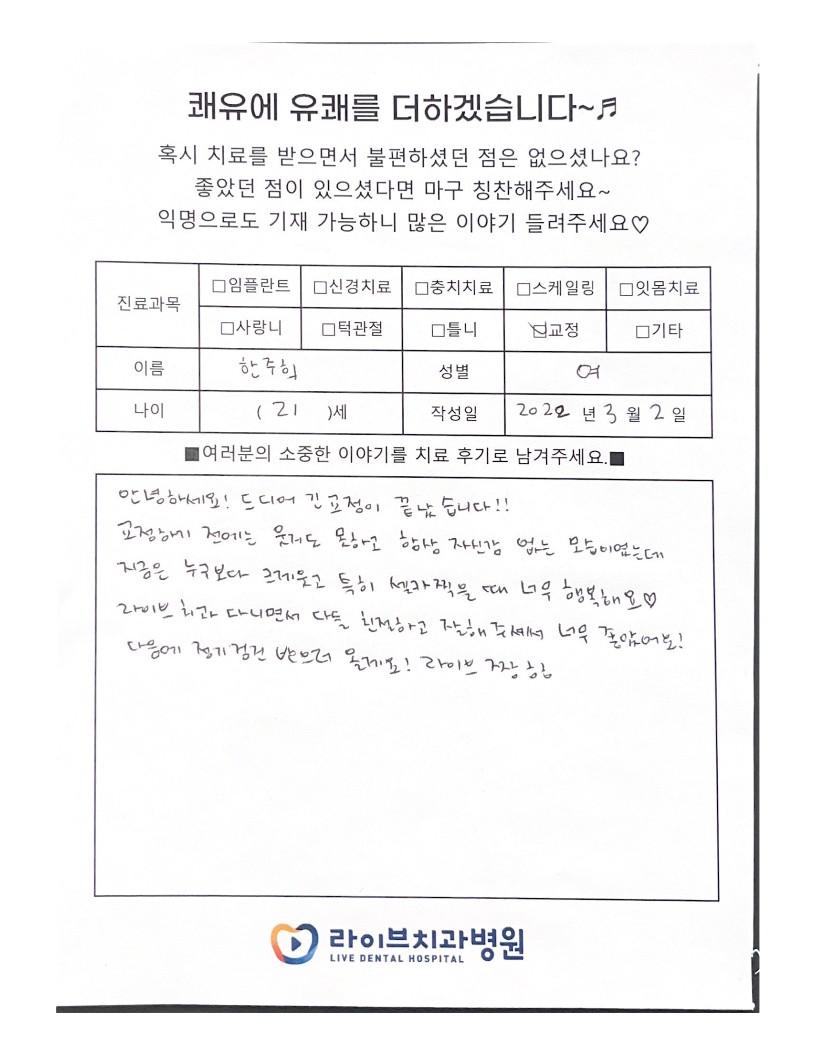 쾌유에 유쾌를 더하겠습니다~♬
혹시 치료를 받으면서 불편하셨던 점은 없으셨나요?
좋았던 점이 있으셨다면 마구 칭찬해주세요~
익명으로도 기재 가능하니 많은 이야기 들려주세요♡
진료과목 □임플란트 □신경치료 □충치치료 □스케일링 □잇몸치료
□사랑니 □턱관절 □틀니 ☑교정 □기타
이름 한주희 성별 여
나이 ( 21 )세 작성일 2022 년 3 월 2 일
■여러분의 소중한 이야기를 치료 후기로 남겨주세요.■
안녕하세요! 드디어 긴 교정이 끝났습니다!!
교정하기 전에는 웃지도 못하고 항상 자신감 없는 모습이였는데
지금은 누구보다 크게웃고 특히 셀카찍을 때 너무 행복해요♡
라이브치과 다니면서 다들 친절하고 잘해주셔서 너무 좋았어요!
다음에 정기검진 받으러 올게요! 라이브 짱
라이브치과병원
LIVE DENTAL HOSPITAL